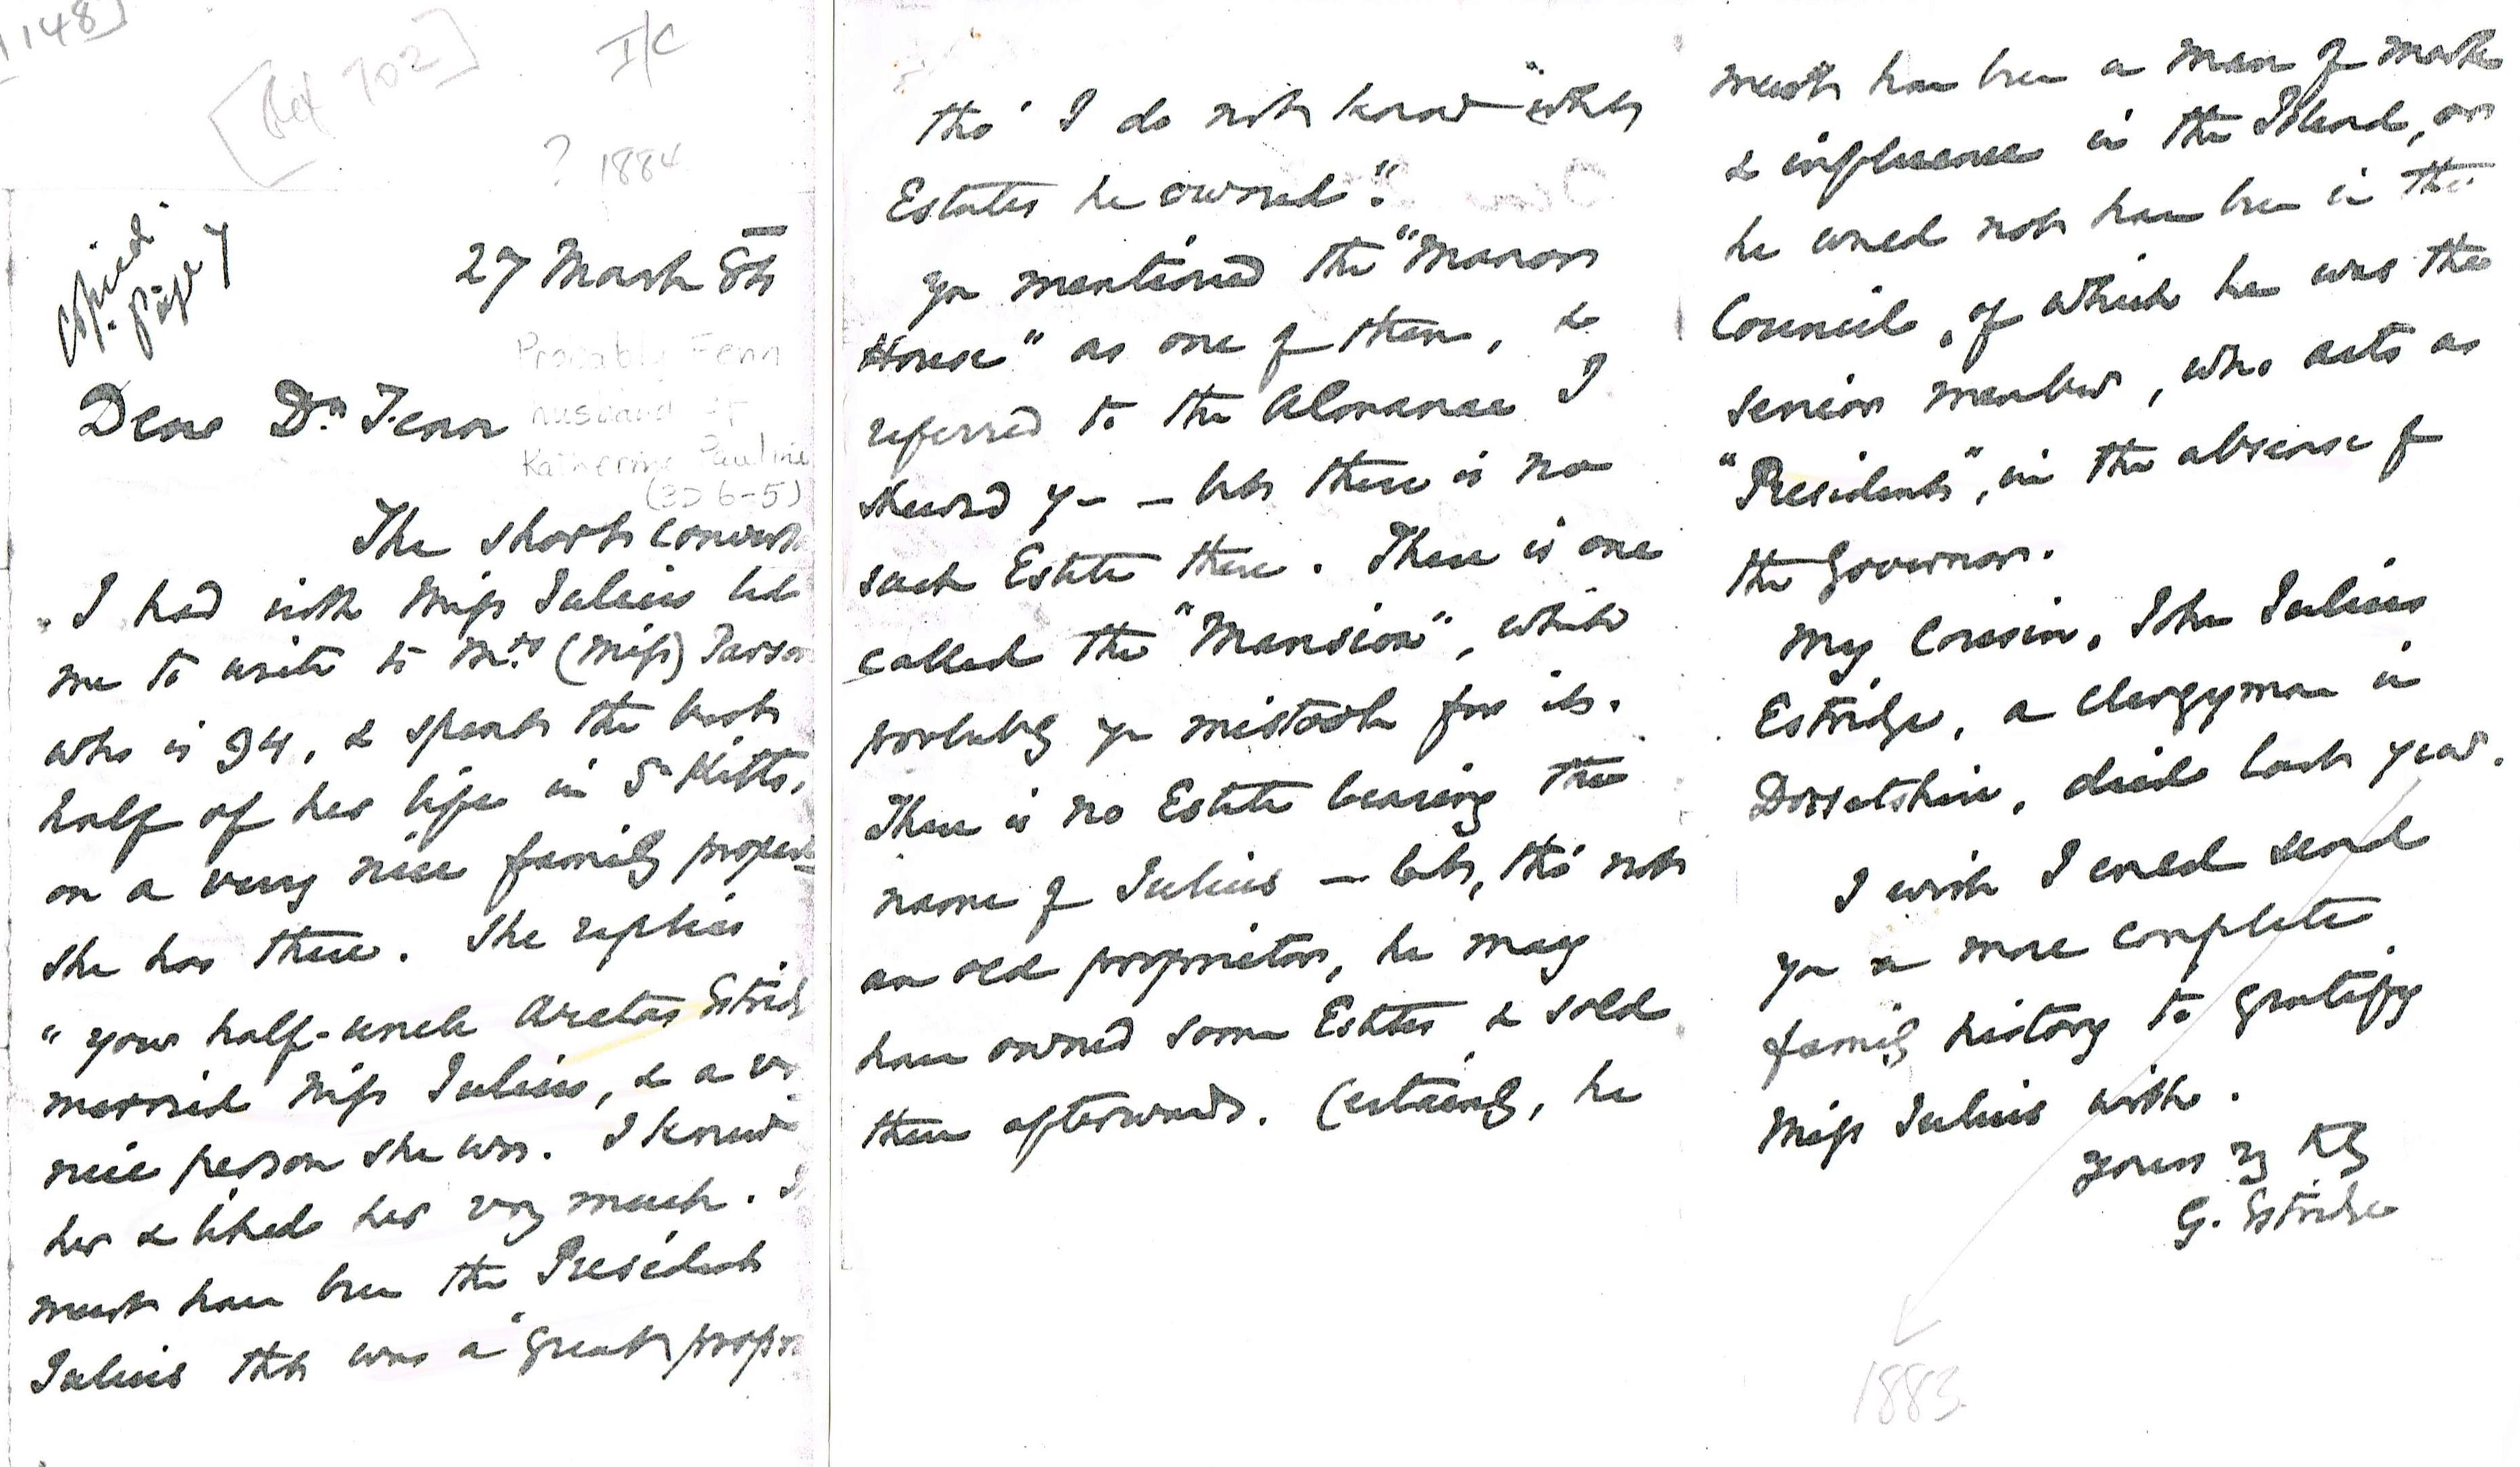 148]
[Ref 702]
I/C
? 1884
Copied
page 7
27 March 84
Probably Fenn
husband of
Katherine Pauline
(3D 6-5)
Dear Dr. Fenn
The short convers
I had with Miss Julius led
me to write to Mrs. (Miss)
who is 94, & spent the best
half of her life in St Kitts,
on a very nice family proper
she has there. She replies
"your half-uncle Aretas Estrid
married Miss Julius, & a v
nice person she was. I knew
her & liked her very much.
must have been the President
Julius that was a great propr
tho' I do not know what
Estates he owned".
You mentioned the "Manor
House" as one of them, &
referred to the Almanac I
shewed you — but there is no
such Estate there. There is one
called the "Mansion", which
probably you mistook for it.
There is no Estate bearing the
name of Julius — but, tho' not
an old proprietor, he may
have owned some Estates & sold
them afterwards. Certainly, he
must have been a man of mark
& influence in the Island, or
he would not have been in the
Council, of which he was the
senior member, who acts as
"President", in the absence of
the Governor.
My Cousin, John Julius
Estridge, a clergyman in
Dorsetshire, died last year.
I wish I could send
you a more complete
family history to gratify
Miss Julius with.
Yours vy trly
G. Estridge
1883